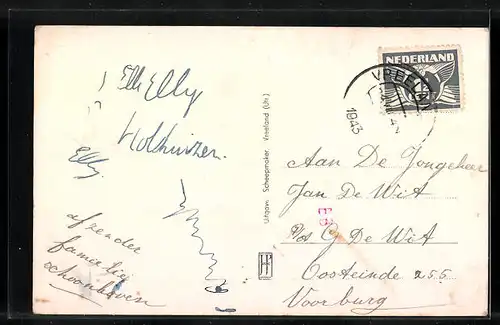 Elly
Holhuizen.
Elly
afzender
familie
schoonhoven
Uitgave: Scheepmaker Vreeland (Utr.)
NEDERLAND
VREELA
1943
Aan De Jongeheer
Jan De Wit
P/os G De Wit
Oosteinde 255
Voorburg